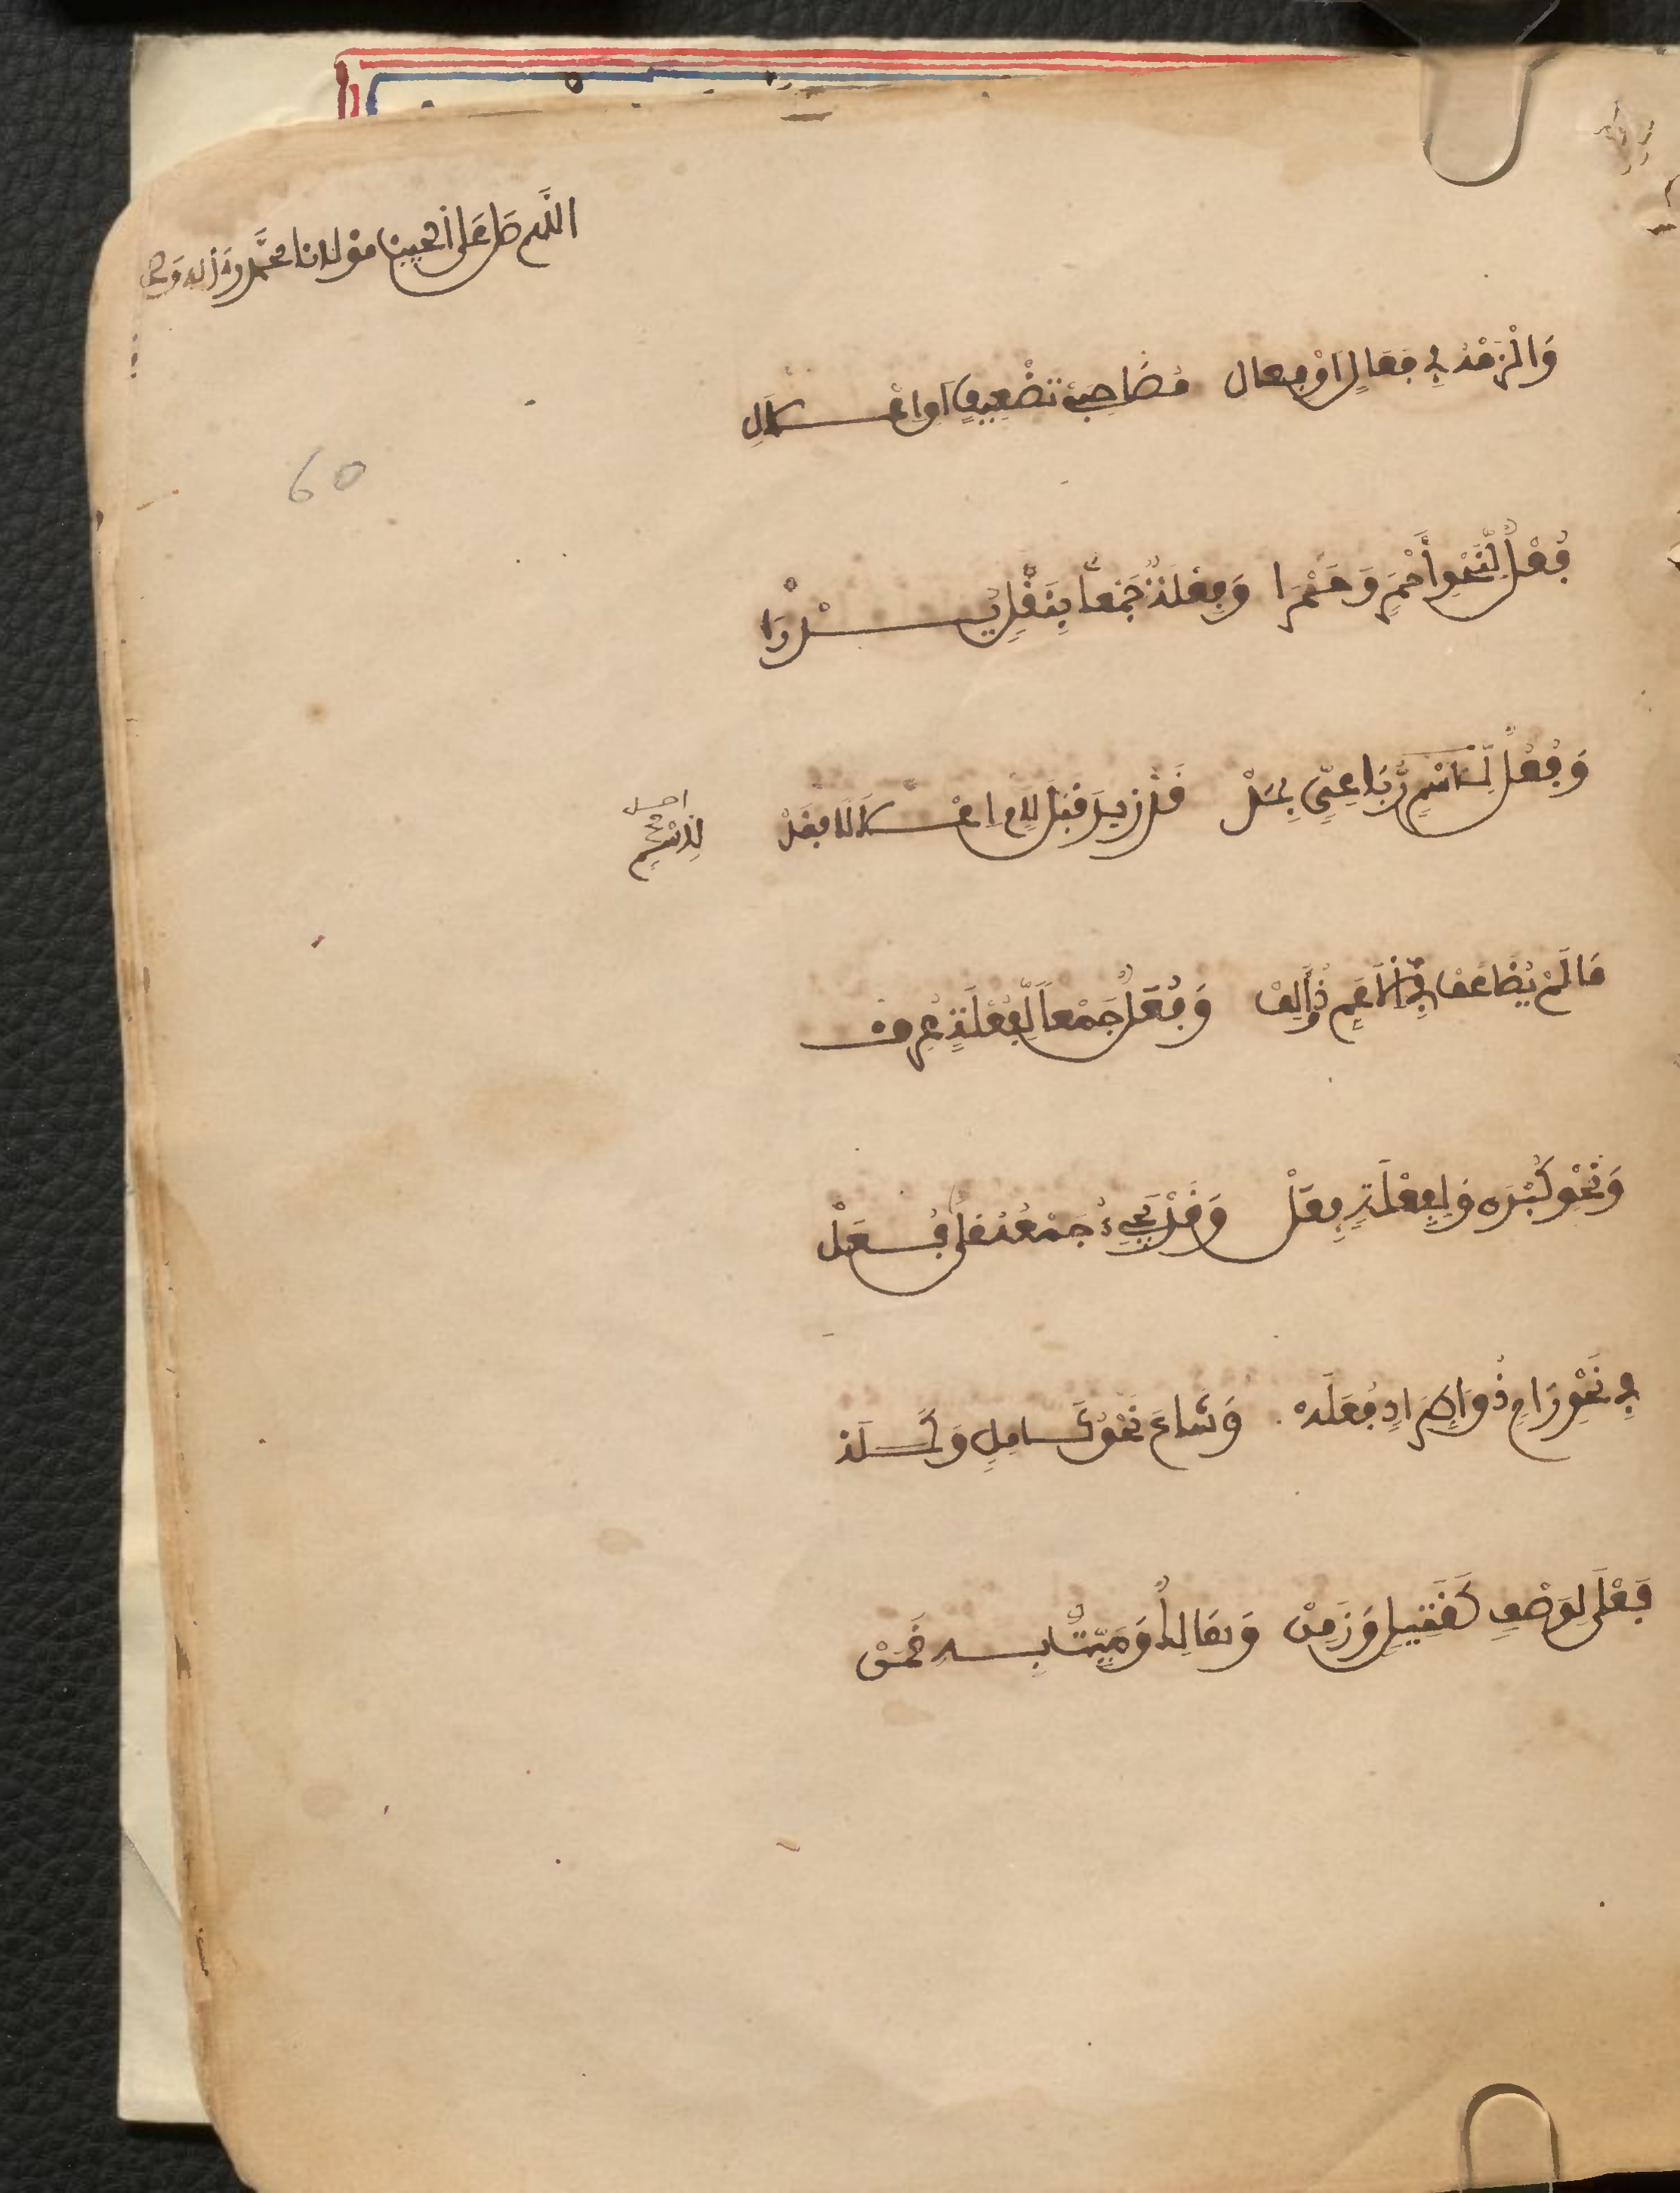 اللهم صل على حبيبنا مولانا محمد وءاله وصحـ
وَالْزَمْهُ فِي فَعَالٍ اوْ فِعال مُصَاحِبَيْ تَضْعِيفٍ اوِ اعْــلَالِ
60
فُعْلٌ لِّنَحْوِ أَحْمَرٍ وَحَمْرَا وَفِعْلَةٌ جَمْعاً بِنَقْلٍ يُــدْرَا
وَفُعُلٌ لِّاسْمٍ رُّبَاعِيٍّ بِمَدْ قَدْ زِيدَ قَبْلَ لَامٍ اعْــلَالَا فَقَدْ
لِلاسْمِ
مَا لَمْ يُضَاعَفْ فِي الَاعَمِّ ذُو الَالِفْ وَفُعَلٌ جَمْعاً لِّفُعْلَةٍ عُرِفْ
وَنَحْوِ كُبْرَى وَلِفِعْلَةٍ فِعَلْ وَقَدْ يَجِيءُ جَمْعُهُ عَلَى فُــعَلْ
فِي نَحْوِ رَامٍ ذُو اطِّرَادٍ فُعَلَهْ وَشَاعَ نَحْوُ كَــامِلٍ وَكَــمَلَهْ
فَعْلَى لِوَصْفٍ كَقَتِيلٍ وَزَمِنْ وَهَالِكٌ وَمَيِّتٌ بِــهِ قَمَنْ